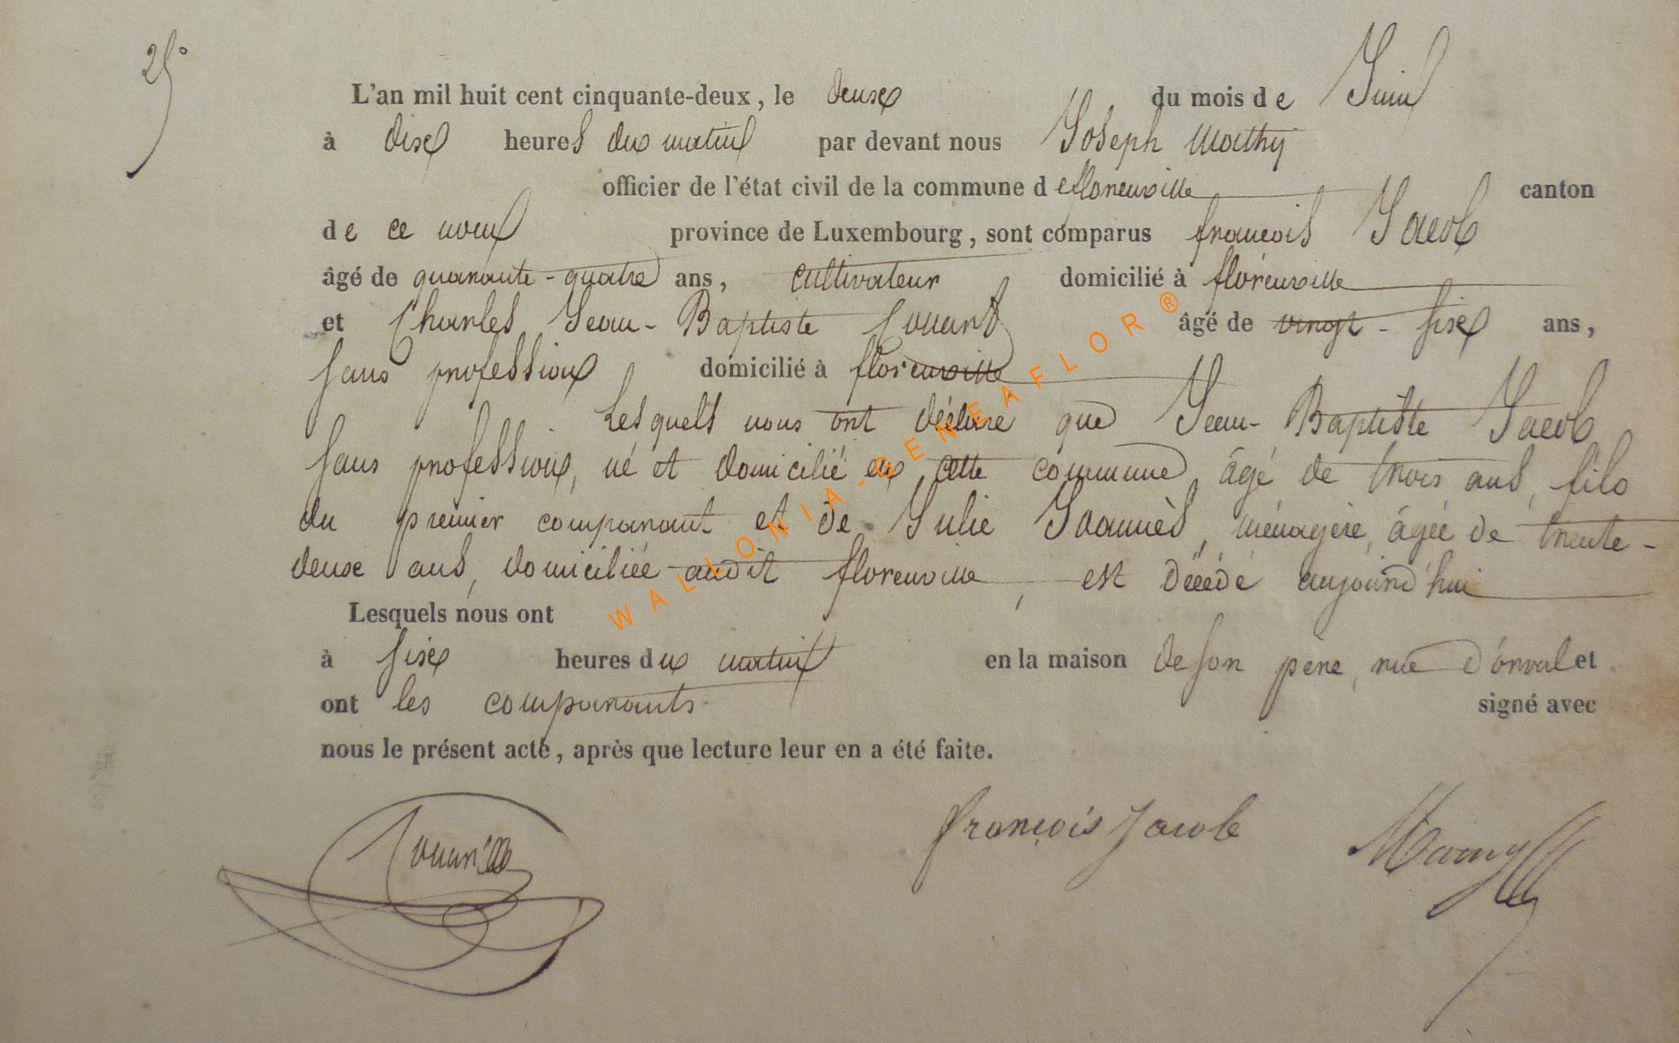 25°
L'an mil huit cent cinquante-deux, le deux du mois de Juin
à dix heures du matin par devant nous Joseph Mathy
officier de l'état civil de la commune de florenville canton
de ce nom province de Luxembourg, sont comparus françois Jacob
âgé de quarante-quatre ans, cultivateur domicilié à florenville
et Charles Jean-Baptiste âgé de vingt-six ans,
sans profession domicilié à florenville
Lesquels nous ont déclaré que Jean-Baptiste Jacob
sans profession, né et domicilié en cette commune, âgé de trois ans, fils
du premier comparant et de Julie Joannès, ménagère, âgée de trente-
deux ans, domiciliée audit florenville, est décédé aujourd'hui
Lesquels nous ont
à six heures du matin en la maison de son père, rue d'orval et
ont les comparants signé avec
nous le présent acte, après que lecture leur en a été faite.
françois Jacob
WALLONIA-GENEAFLOR®